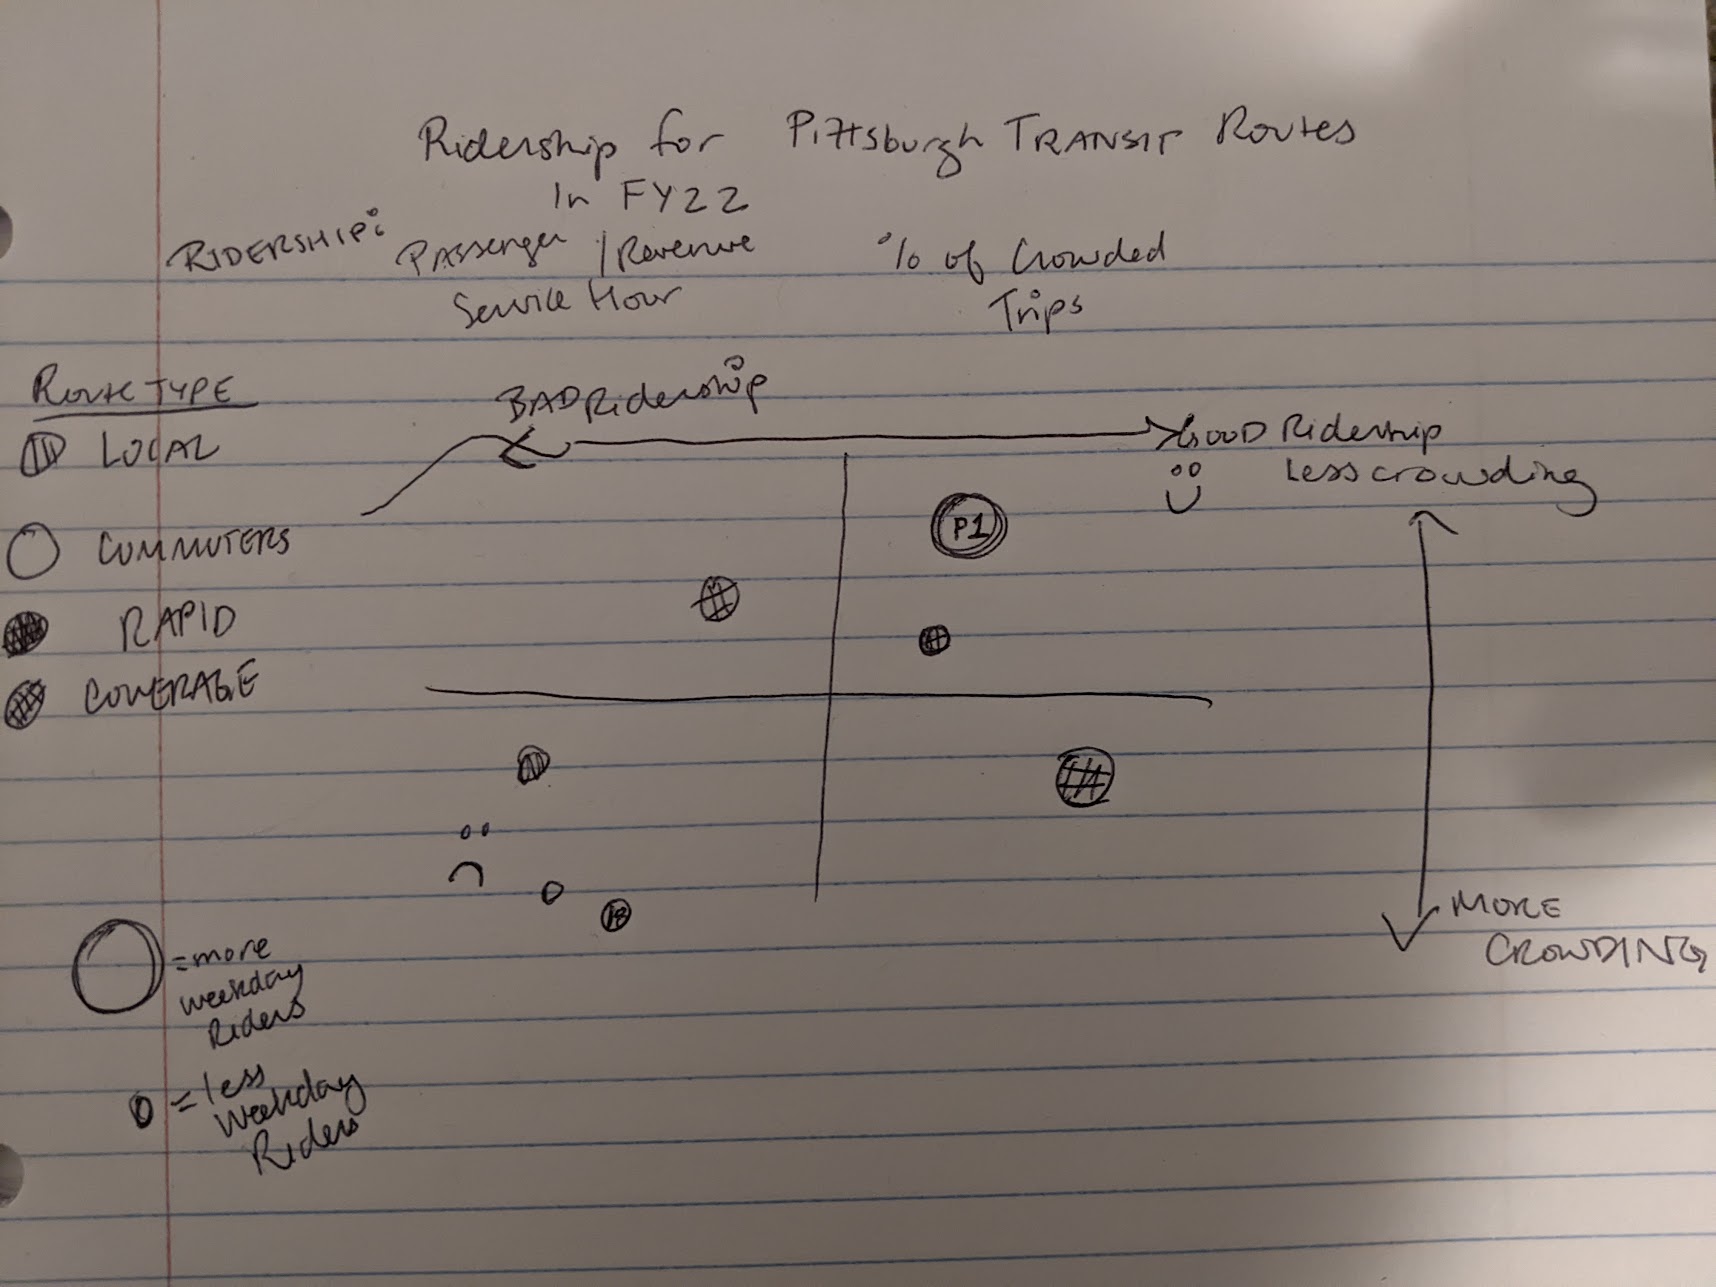 Ridership for Pittsburgh TRANSIT Routes
In FY22
RIDERSHIP: Passenger / Revenue
Service Hour
% of Crowded
Trips
Route TYPE
LOCAL
COMMUTERS
RAPID
COVERAGE
BAD Ridership
GOOD Ridership
Less crowding
P1
MORE
CROWDING
= more
weekday
Riders
= less
Weekday
Riders